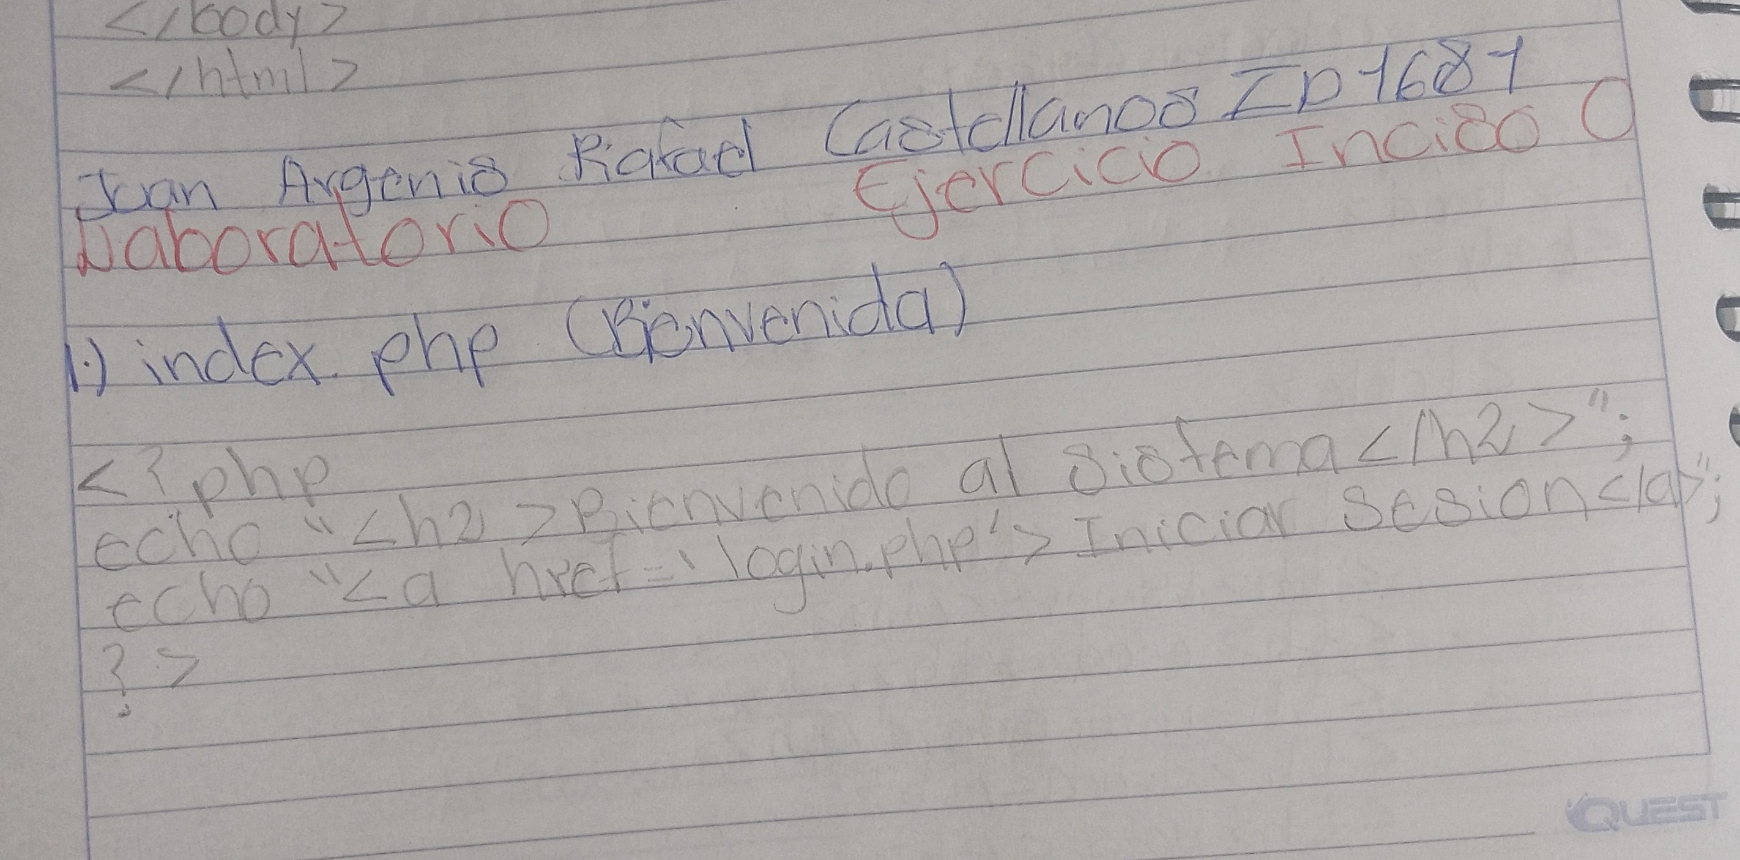 </body>
</html>
Juan Argenis Rafael Castellanos ID 1687
Laboratorio Ejercicio Inciso C
1.) index.php (Bienvenida)
<?php
echo "<h2>Bienvenido al Sistema</h2>";
echo "<a href='login.php'>Iniciar Sesion</a>";
?>
QUEST